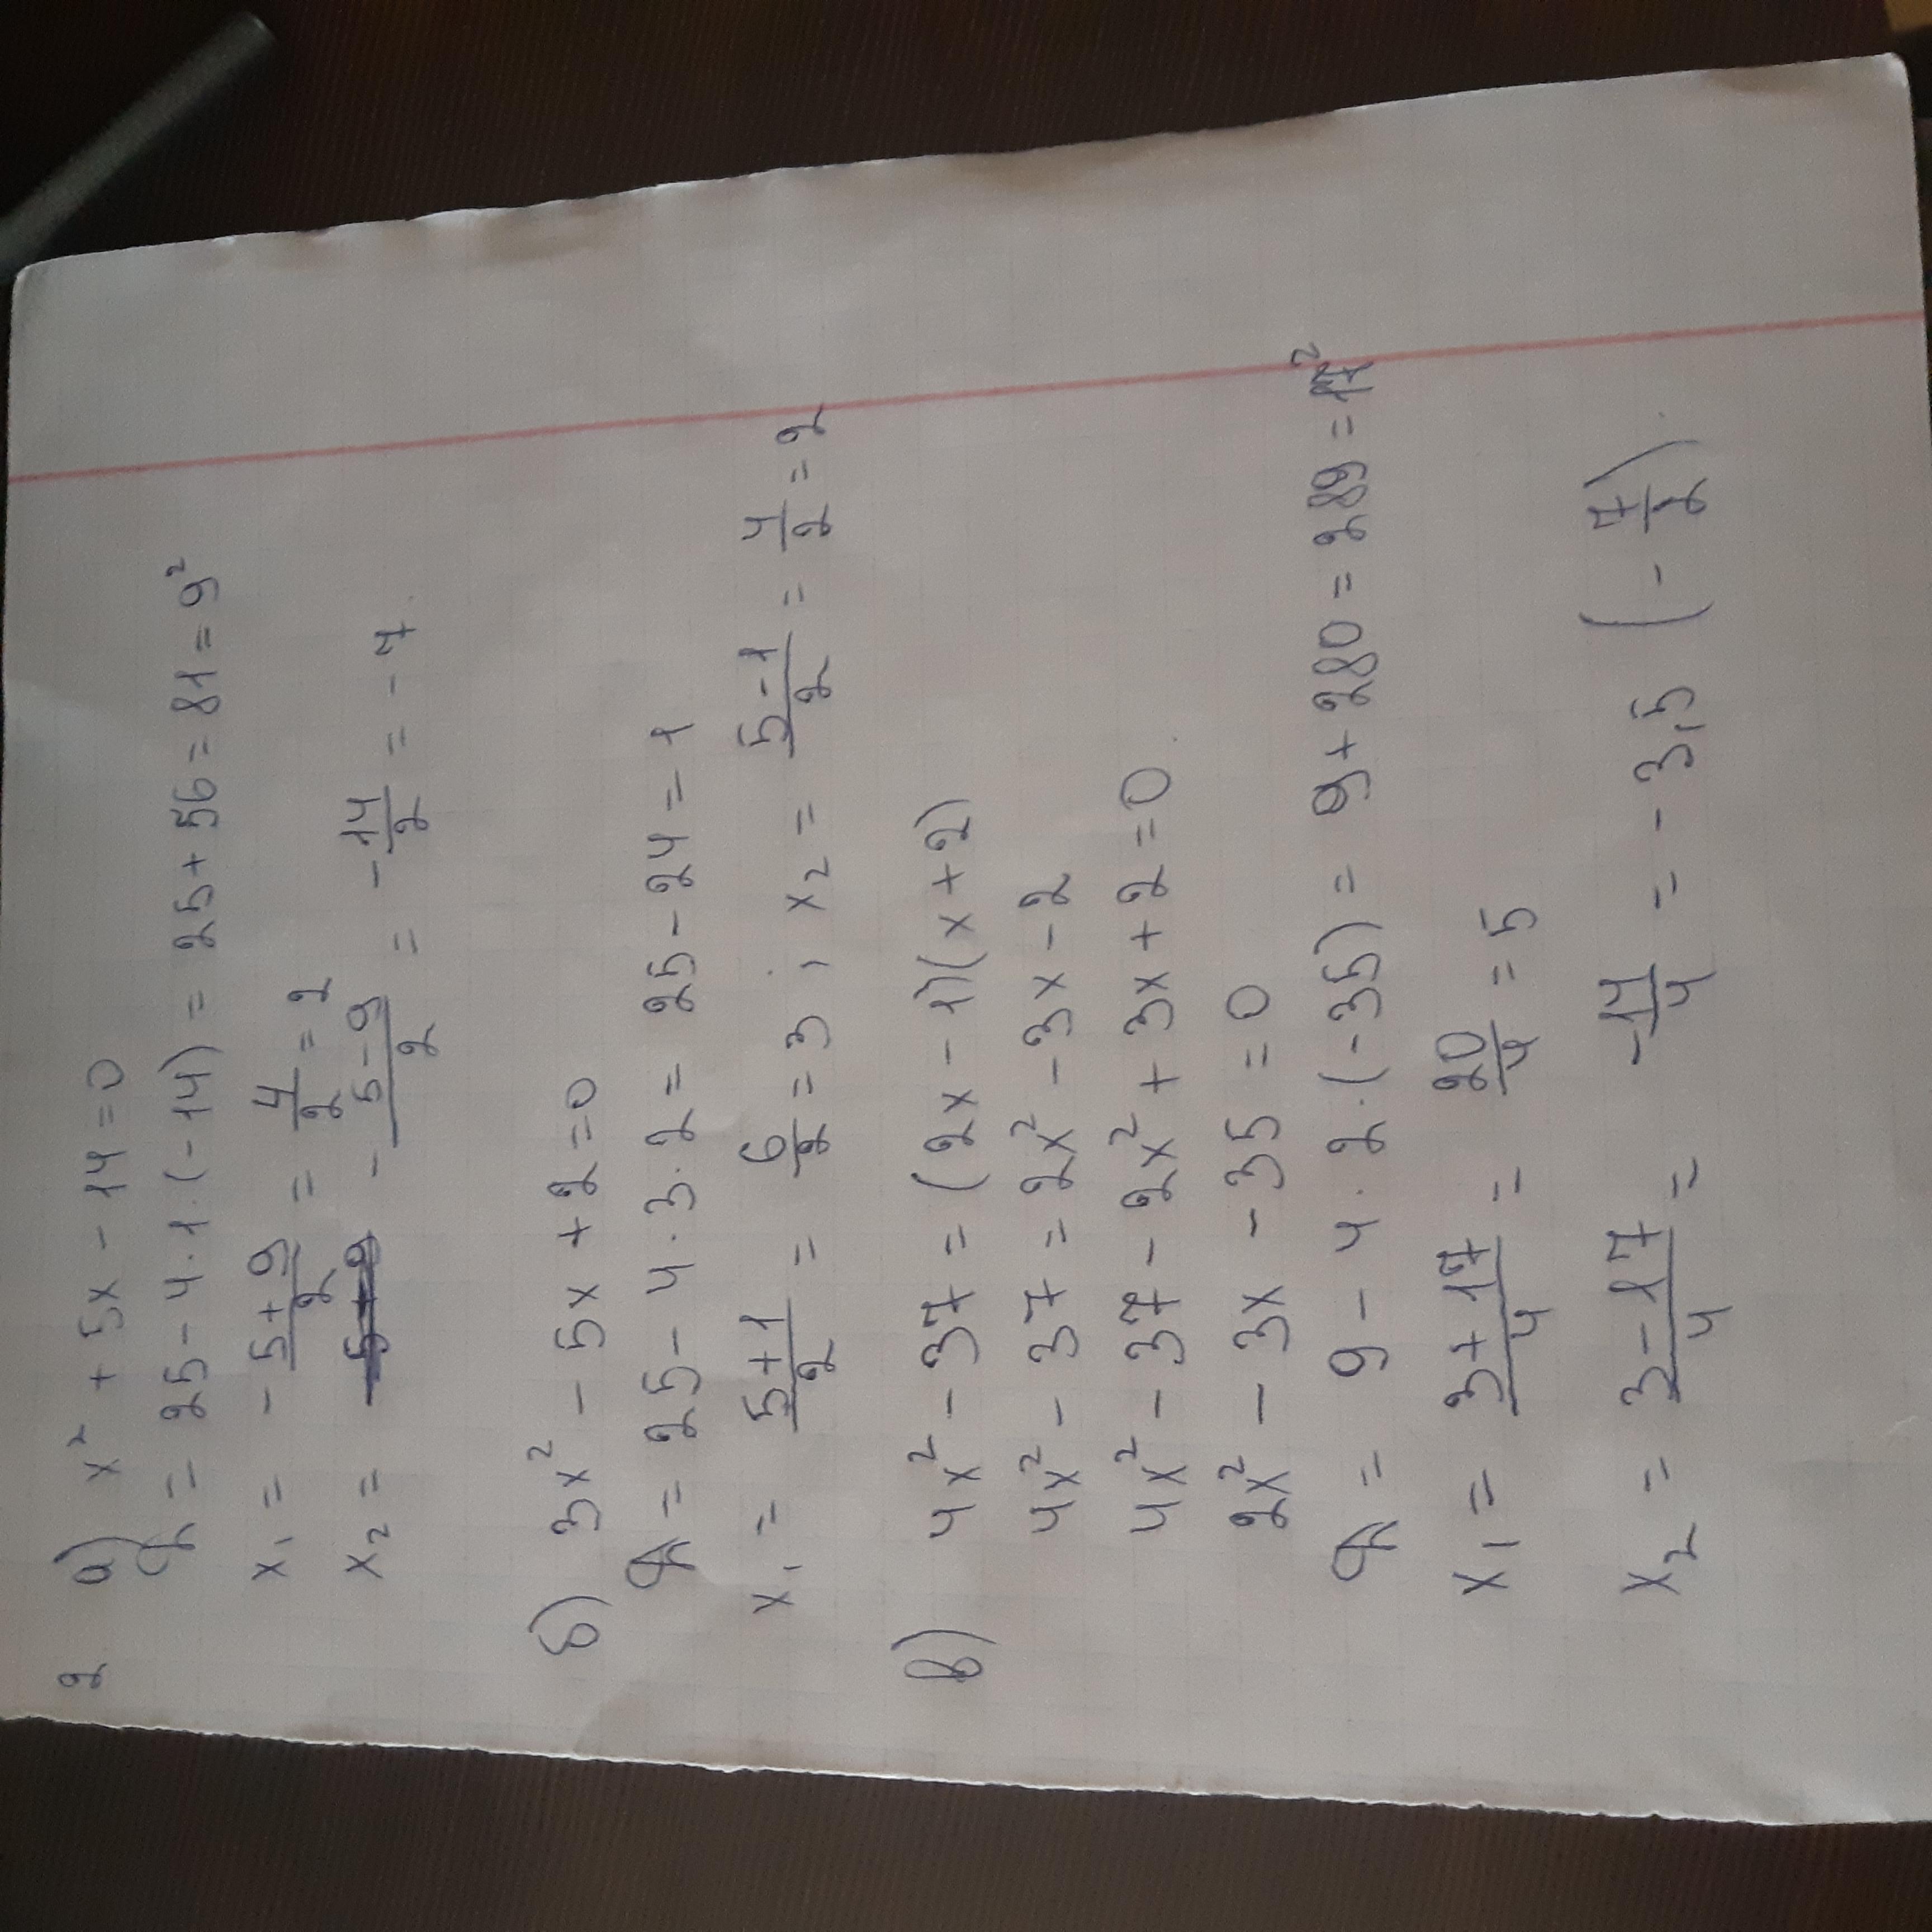 2 а) x² + 5x - 14 = 0
D = 25 - 4 · 1 · (-14) = 25 + 56 = 81 = 9²
x₁ = -5+9/2 = 4/2 = 2
x₂ = -5-9/2 = -14/2 = -7
б) 3x² - 5x + 2 = 0
D = 25 - 4 · 3 · 2 = 25 - 24 = 1
x₁ = 5+1/2 = 6/2 = 3, x₂ = 5-1/2 = 4/2 = 2
в) 4x² - 37 = (2x - 1)(x + 2)
4x² - 37 = 2x² - 3x - 2
4x² - 37 - 2x² + 3x + 2 = 0
2x² - 3x - 35 = 0
D = 9 - 4 · 2 · (-35) = 9 + 280 = 289 = 17²
x₁ = 3+17/4 = 20/4 = 5
x₂ = 3-17/4 = -14/4 = -3,5 (-7/2)